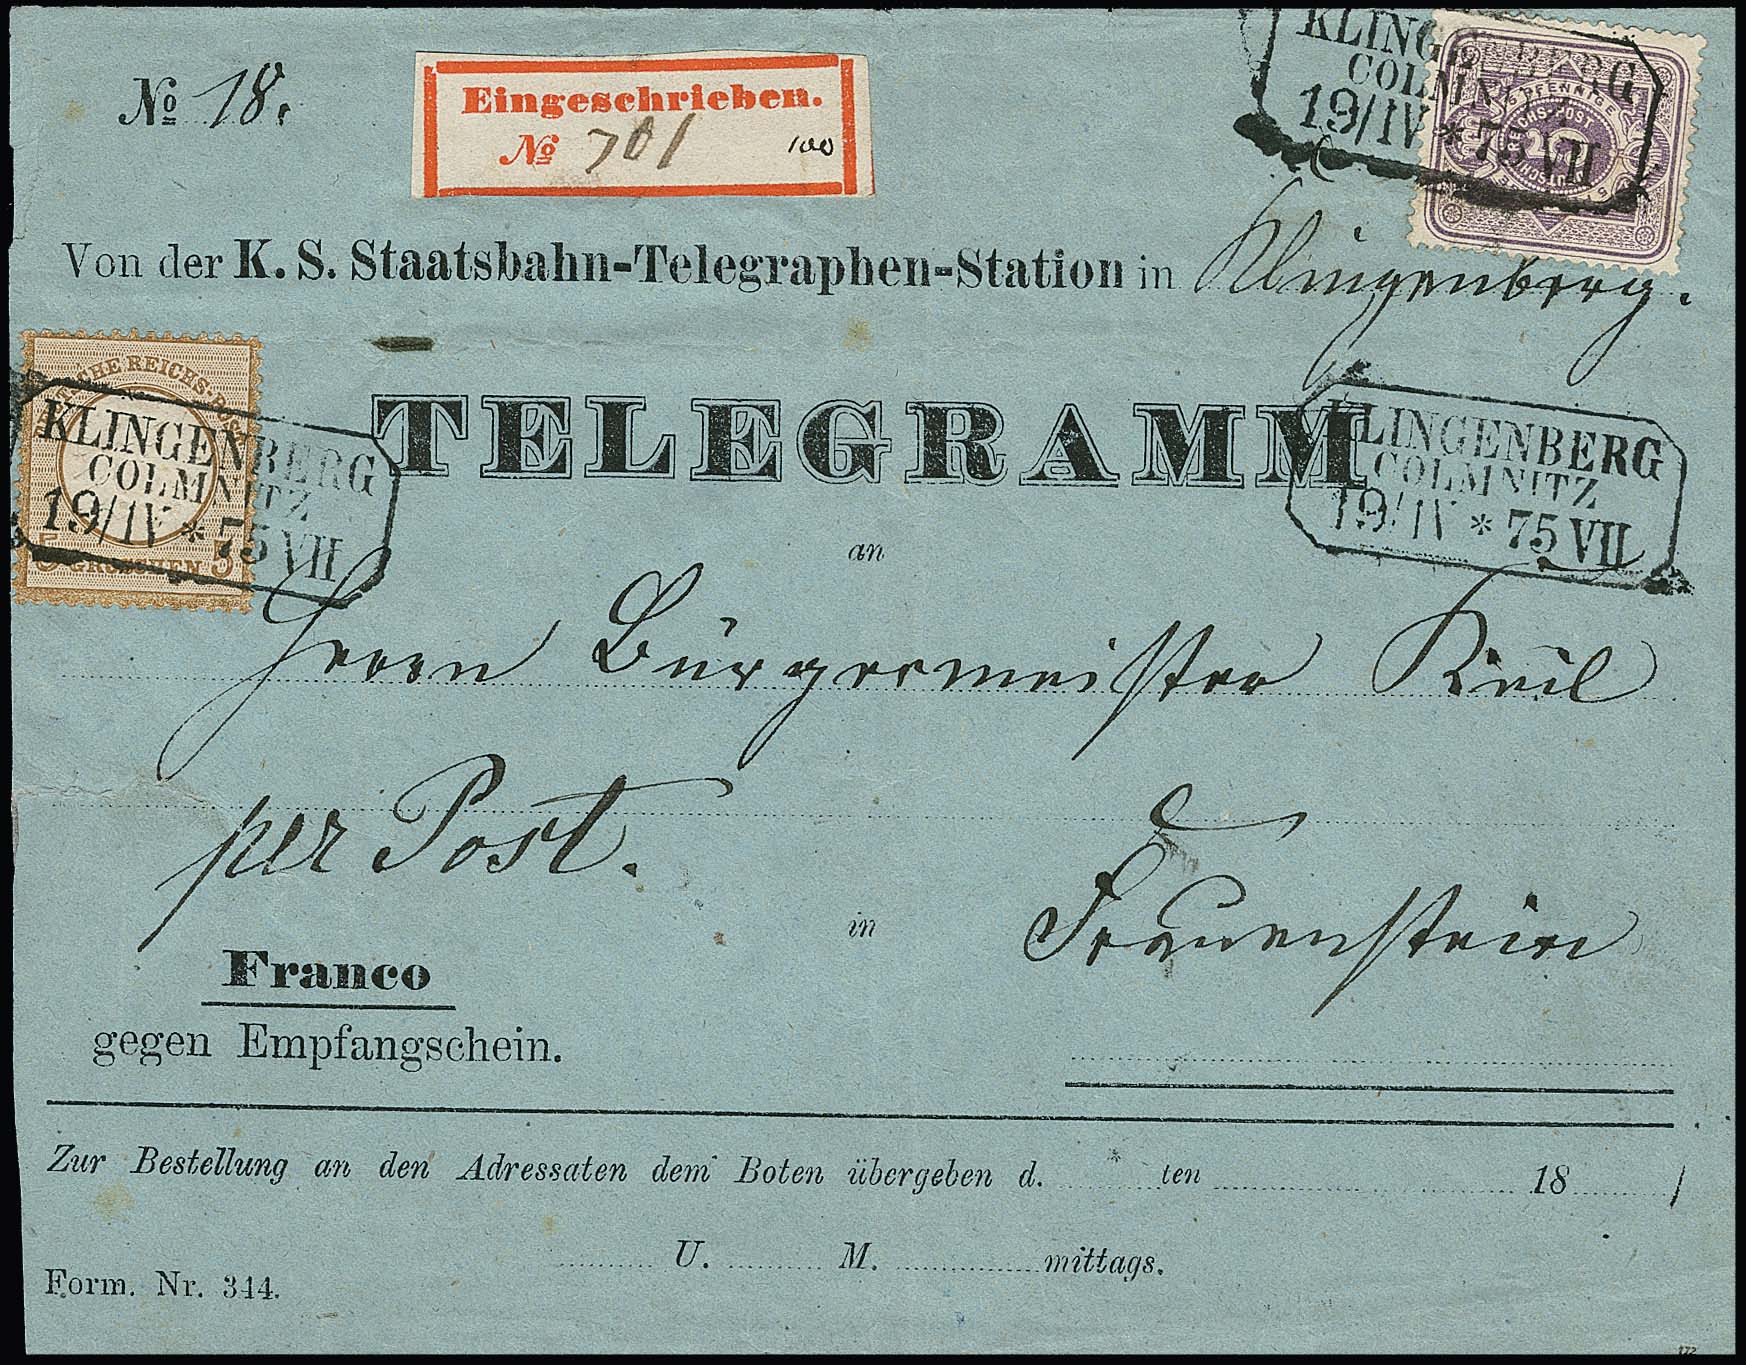 KLINGENBERG
COLMNITZ
19/IV * 75 VII
5 PFENNIGE
REICHS-POST
№ 18.
Eingeschrieben.
№ 701
100
Von der K. S. Staatsbahn-Telegraphen-Station in Klingenberg.
REICHS-POST
5 GROSCHEN 5
KLINGENBERG
COLMNITZ
19/IV * 75 VII
TELEGRAMM
KLINGENBERG
COLMNITZ
19/IV * 75 VII
an
Herrn Bürgermeister Keil
per Post.
in
Frauenstein
Franco
gegen Empfangschein.
Zur Bestellung an den Adressaten dem Boten übergeben d. ten 18
U. M. mittags.
Form. Nr. 344.